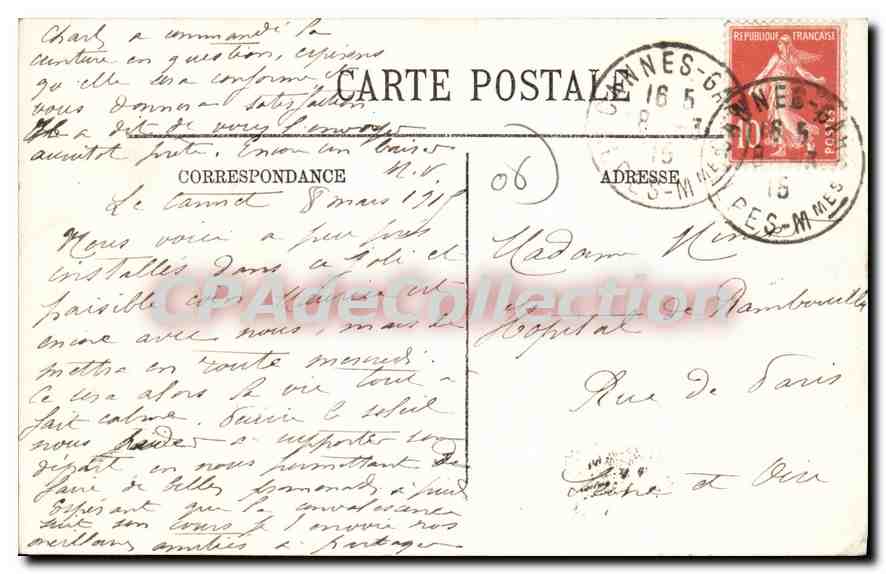 Charly a commandé la
ceinture en question, espérons
qu'elle sera conforme et
vous donnera satisfaction
a dit de vous l'envoyer
aussitôt prête. Encore un baiser
N.V.
CARTE POSTALE
CORRESPONDANCE
ADRESSE
REPUBLIQUE FRANÇAISE
10
POSTES
CANNES-GARE
16 5
8 3
15
ALPES-MMES
CANNES-GARE
16 5
8 3
15
ALPES-MMES
06
Le Cannet 8 mars 1915
Nous voici à peu près
installés dans ce joli et
paisible coin Maurice est
encore avec nous, mais se
mettra en route mercredi.
Ce sera alors la vie tout à
fait calme. Puisse le soleil
nous aider à supporter son
départ en nous permettant de
faire de belles promenades à pied
Espérant que la convalescence
suit son cours je t'envoie nos
meilleures amitiés à partager
Madame
Hopital de Rambouillet
Rue de Paris
Seine et Oise
CPAdeCollection